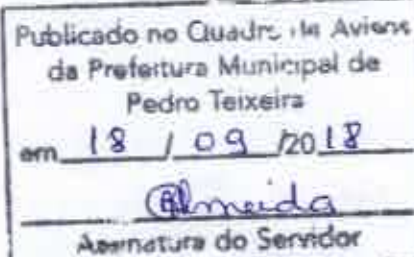 Publicado no Quadro de Avisos
da Prefeitura Municipal de
Pedro Teixeira
em 18 / 09 /2018
Almeida
Assinatura do Servidor